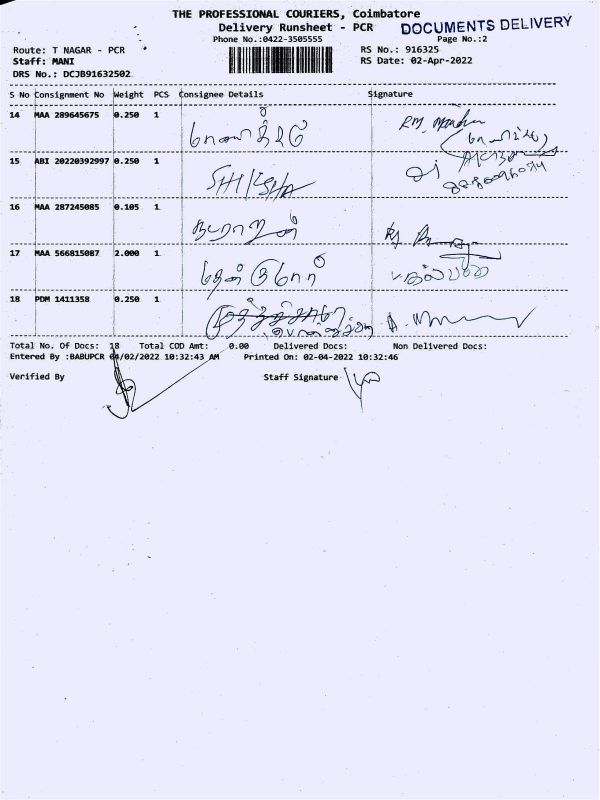 THE PROFESSIONAL COURIERS, Coimbatore
Delivery Runsheet - PCR
DOCUMENTS DELIVERY
Phone No.:0422-3505555
Page No.:2
Route: T NAGAR - PCR
RS No.: 916325
Staff: MANI
RS Date: 02-Apr-2022
DRS No.: DCJB91632502
S No Consignment No Weight PCS Consignee Details Signature
14 MAA 289645675 0.250 1
15 ABI 20220392997 0.250 1 SHIKSHA
16 MAA 287245085 0.105 1 நடராஜன்
17 MAA 566815087 2.000 1
18 PDM 1411358 0.250 1
Total No. Of Docs: 18 Total COD Amt: 0.00 Delivered Docs: Non Delivered Docs:
Entered By :BABUPCR 04/02/2022 10:32:43 AM Printed On: 02-04-2022 10:32:46
Verified By Staff Signature